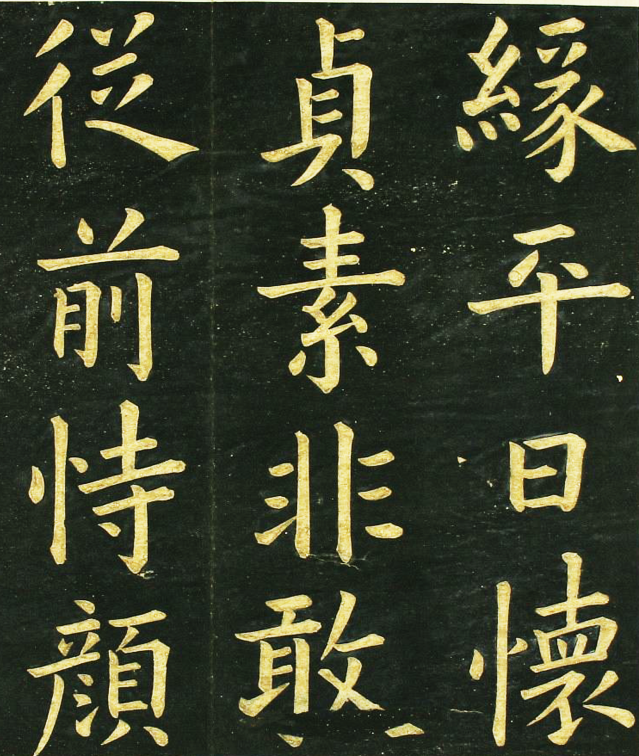 緣平日懷
貞素非敢
從前恃顔